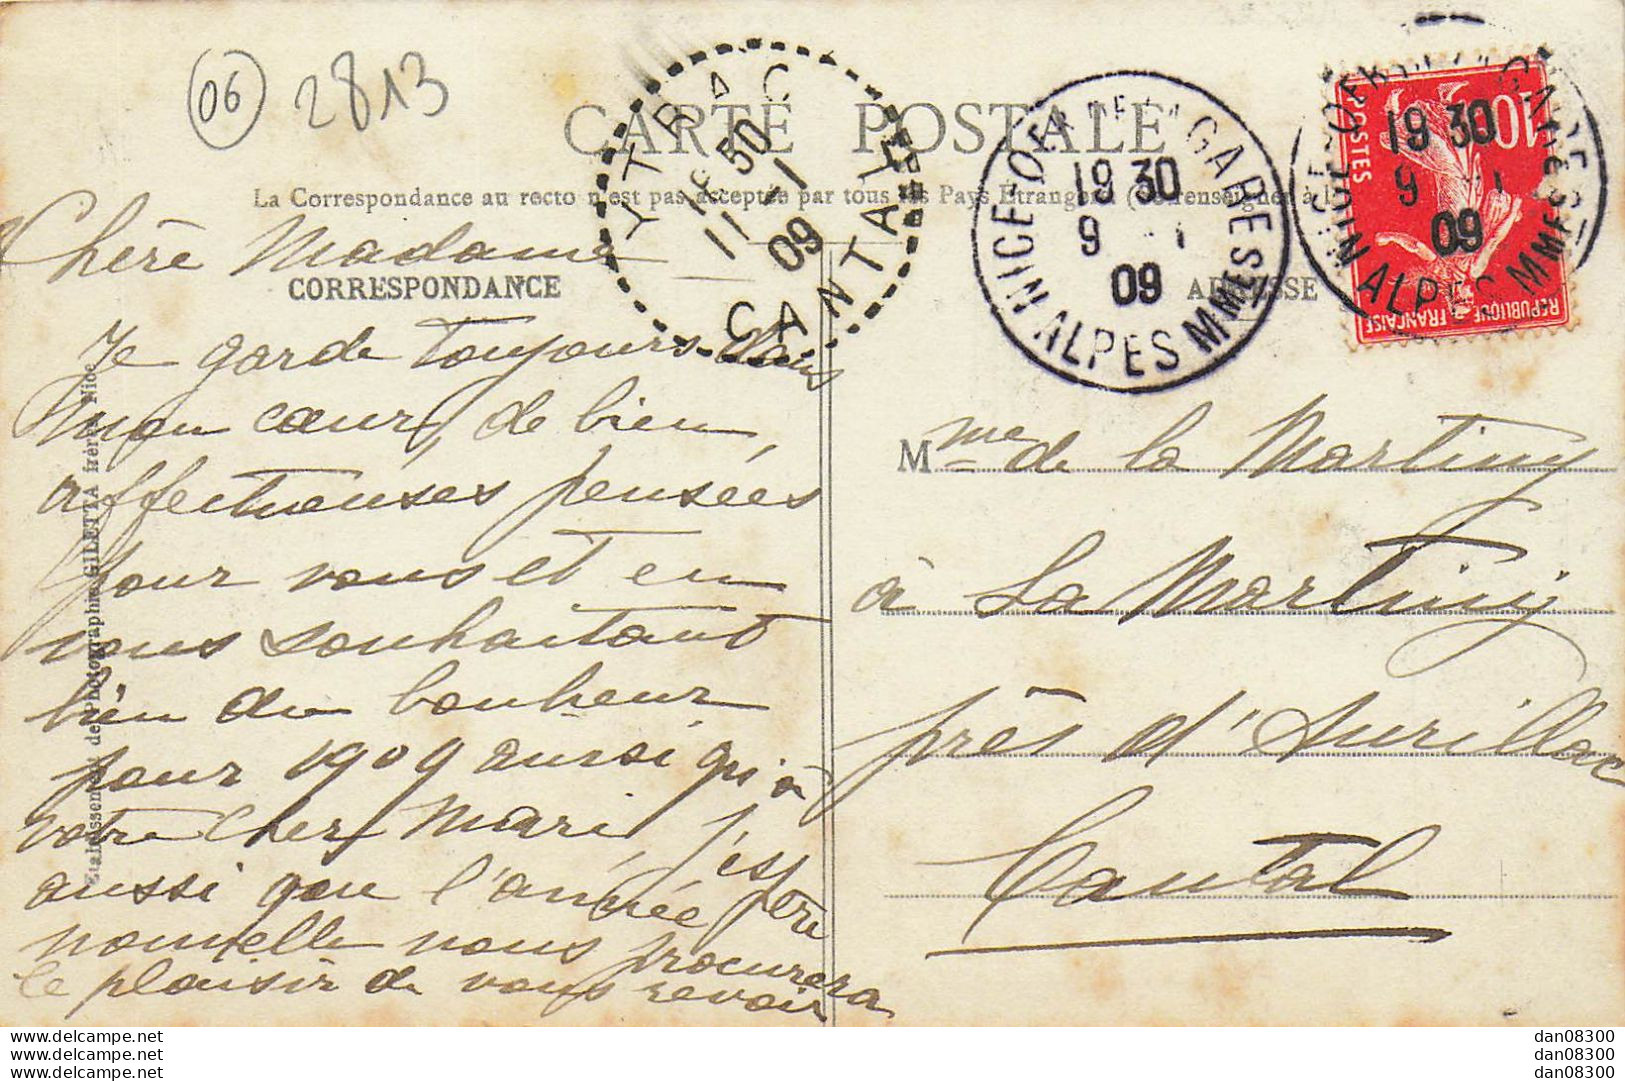 06
2813
CARTE POSTALE
La Correspondance au recto n'est pas acceptée par tous les Pays Étrangers (se renseigner à la
CORRESPONDANCE
ADRESSE
YTRAC
50
11 - 1
09
CANTAL
NICE
GARE
19 30
9 - 1
09
ALPES MMES
19 30
9 - 1
09
ALPES MMES
10
POSTES
REPUBLIQUE FRANÇAISE
Etablissement de Photographie GILETTA frères Nice
Chère Madame
Je garde toujours dans
mon cœur, de bien,
affectueuses pensées
pour vous et en
vous souhaitant
bien du bonheur
pour 1909 aussi qu'à
votre cher Mari, j'espère
aussi que l'année
nouvelle nous procurera
le plaisir de vous revoir
Mme de la Martiny
à La Martiny
près d'Aurillac
Cantal
delcampe.net
delcampe.net
delcampe.net
dan08300
dan08300
dan08300